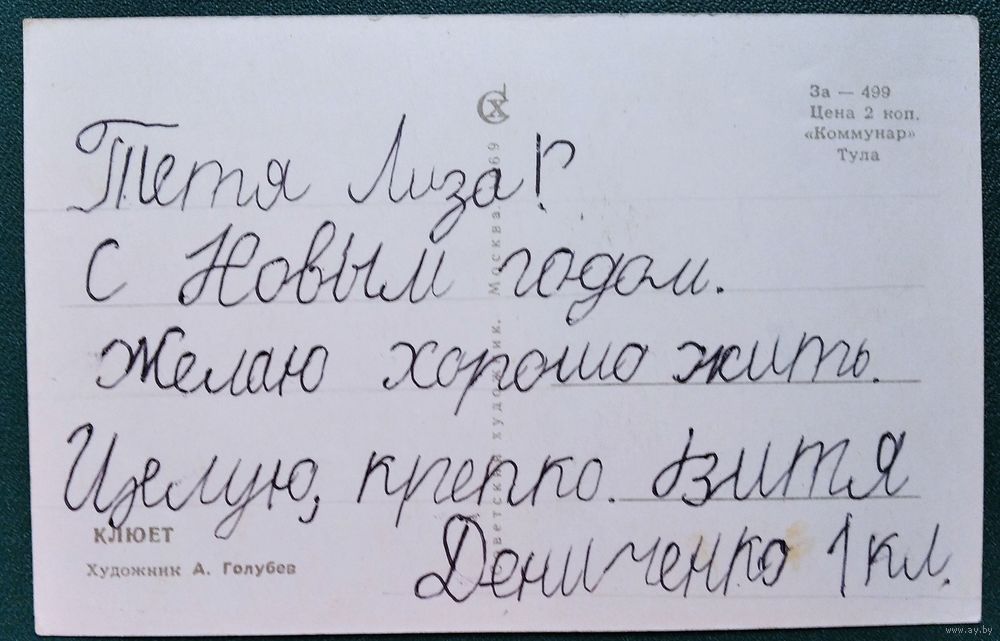 За — 499
Цена 2 коп.
«Коммунар»
Тула
Тетя Лиза!
С Новым годом.
Желаю хорошо жить.
Целую, крепко. Витя
Дениченко 1 кл.
Советский художник. Москва. 1969
КЛЮЕТ
Художник А. Голубев
www.ay.by